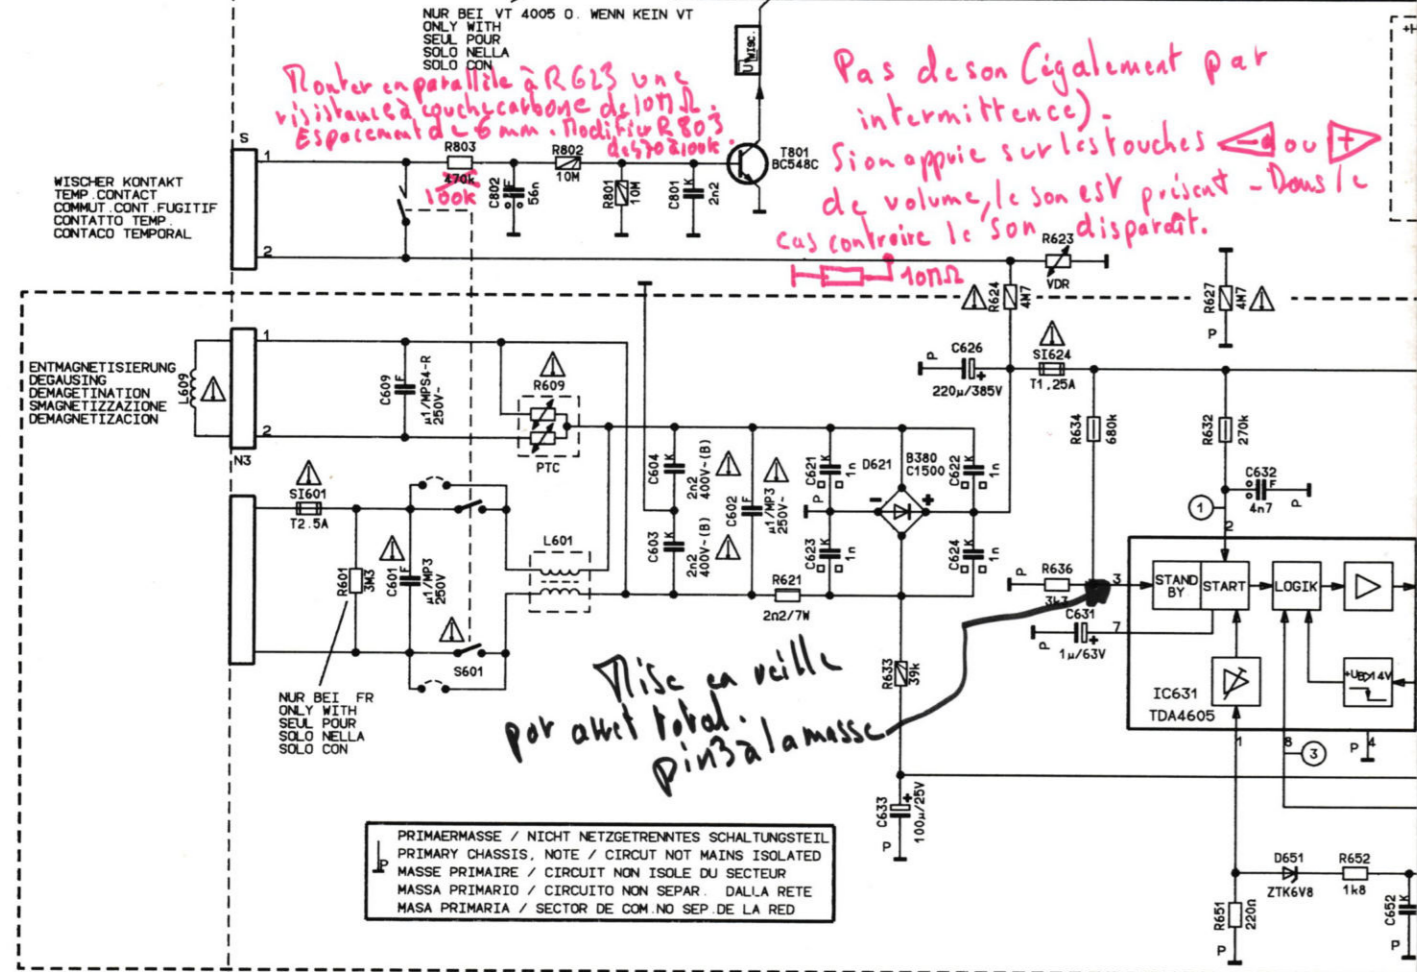 NUR BEI VT 4005 O. WENN KEIN VT
ONLY WITH
SEUL POUR
SOLO NELLA
SOLO CON
Monter en parallèle à R623 une
résistance à couche carbone de 10MΩ.
Espacement de 6 mm. Modifier R803
de 470 à 100k.
Pas de son (également par
intermittence).
Si on appuie sur les touches - ou +
de volume, le son est présent - Dans le
cas contraire le son disparaît.
10MΩ
S
1
2
WISCHER KONTAKT
TEMP.CONTACT
COMMUT.CONT.FUGITIF
CONTATTO TEMP.
CONTACO TEMPORAL
R803
470k
100k
C802 F
56n
R802
10M
R801
10M
C801 K
2n2
T801
BC548C
UWISC.
R623
VDR
R624
4M7
R627
4M7
P
ENTMAGNETISIERUNG
DEGAUSING
DEMAGETINATION
SMAGNETIZZAZIONE
DEMAGNETIZACION
L609
1
2
N3
C609 F
µ1/MPS4-R
250V~
R609
PTC
P
C626
220µ/385V
SI624
T1,25A
R634
680k
R632
270k
C632
F
4n7
P
1
2
SI601
T2.5A
R601
3M3
C601 F
µ1/MP3
250V
S601
L601
C604 K
2n2
400V~(B)
C603 K
2n2
400V~(B)
C602 F
µ1/MP3
250V~
C621 K
1n
P
C623 K
1n
D621
B380
C1500
- +
C622 K
1n
C624 K
1n
R621
2n2/7W
P
R636
3k3
3
C631
1µ/63V
P
7
STAND
BY
START
LOGIK
IC631
TDA4605
+UB>14V
1
8
3
P
4
NUR BEI FR
ONLY WITH
SEUL POUR
SOLO NELLA
SOLO CON
Mise en veille
par arret total.
pin3 à la masse
R633
39k
C633
100µ/25V
P
P
PRIMAERMASSE / NICHT NETZGETRENNTES SCHALTUNGSTEIL
PRIMARY CHASSIS, NOTE / CIRCUT NOT MAINS ISOLATED
MASSE PRIMAIRE / CIRCUIT NON ISOLE DU SECTEUR
MASSA PRIMARIO / CIRCUITO NON SEPAR. DALLA RETE
MASA PRIMARIA / SECTOR DE COM.NO SEP.DE LA RED
D651
ZTK6V8
R652
1k8
R651
220n
P
C652 K
P